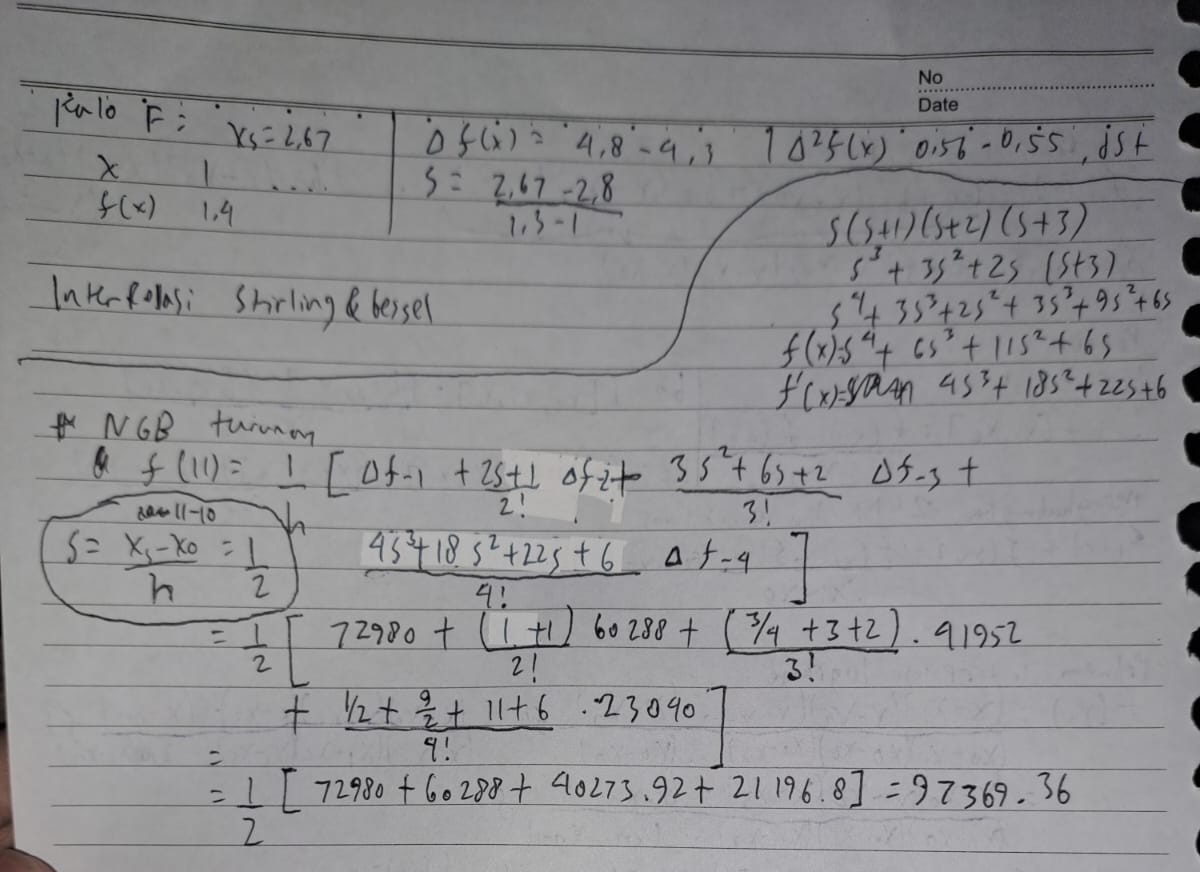 No
Date
Kalo F: xs = 2,67
x 1 ....
f(x) 1,4
Δ f(x) = 4,8 - 4,3
S = 2,67 - 2,8
1,3 - 1
Δ²f(x) 0,56 - 0,55, dst
Interpolasi Stirling & bessel
s(s+1)(s+2)(s+3)
s³ + 3s² + 2s (s+3)
s⁴ + 3s³ + 2s² + 3s³ + 9s² + 6s
f(x) = s⁴ + 6s³ + 11s² + 6s
f'(x) = 4s³ + 18s² + 22s + 6
# NGB turunan
f(11) = 1/h [ Δf-1 + 2s+1/2! Δf-2 + 3s²+6s+2/3! Δf-3 +
4s³+18s²+22s+6/4! Δf-4 ]
11-10
S = xs-x0/h = 1/2
= 1/2 [ 72980 + (1+1)/2! 60288 + (3/4 + 3 + 2)/3! . 41952
+ 1/2 + 9/2 + 11 + 6/4! . 23040 ]
=
= 1/2 [ 72980 + 60288 + 40273.92 + 21196.8 ] = 97369.36